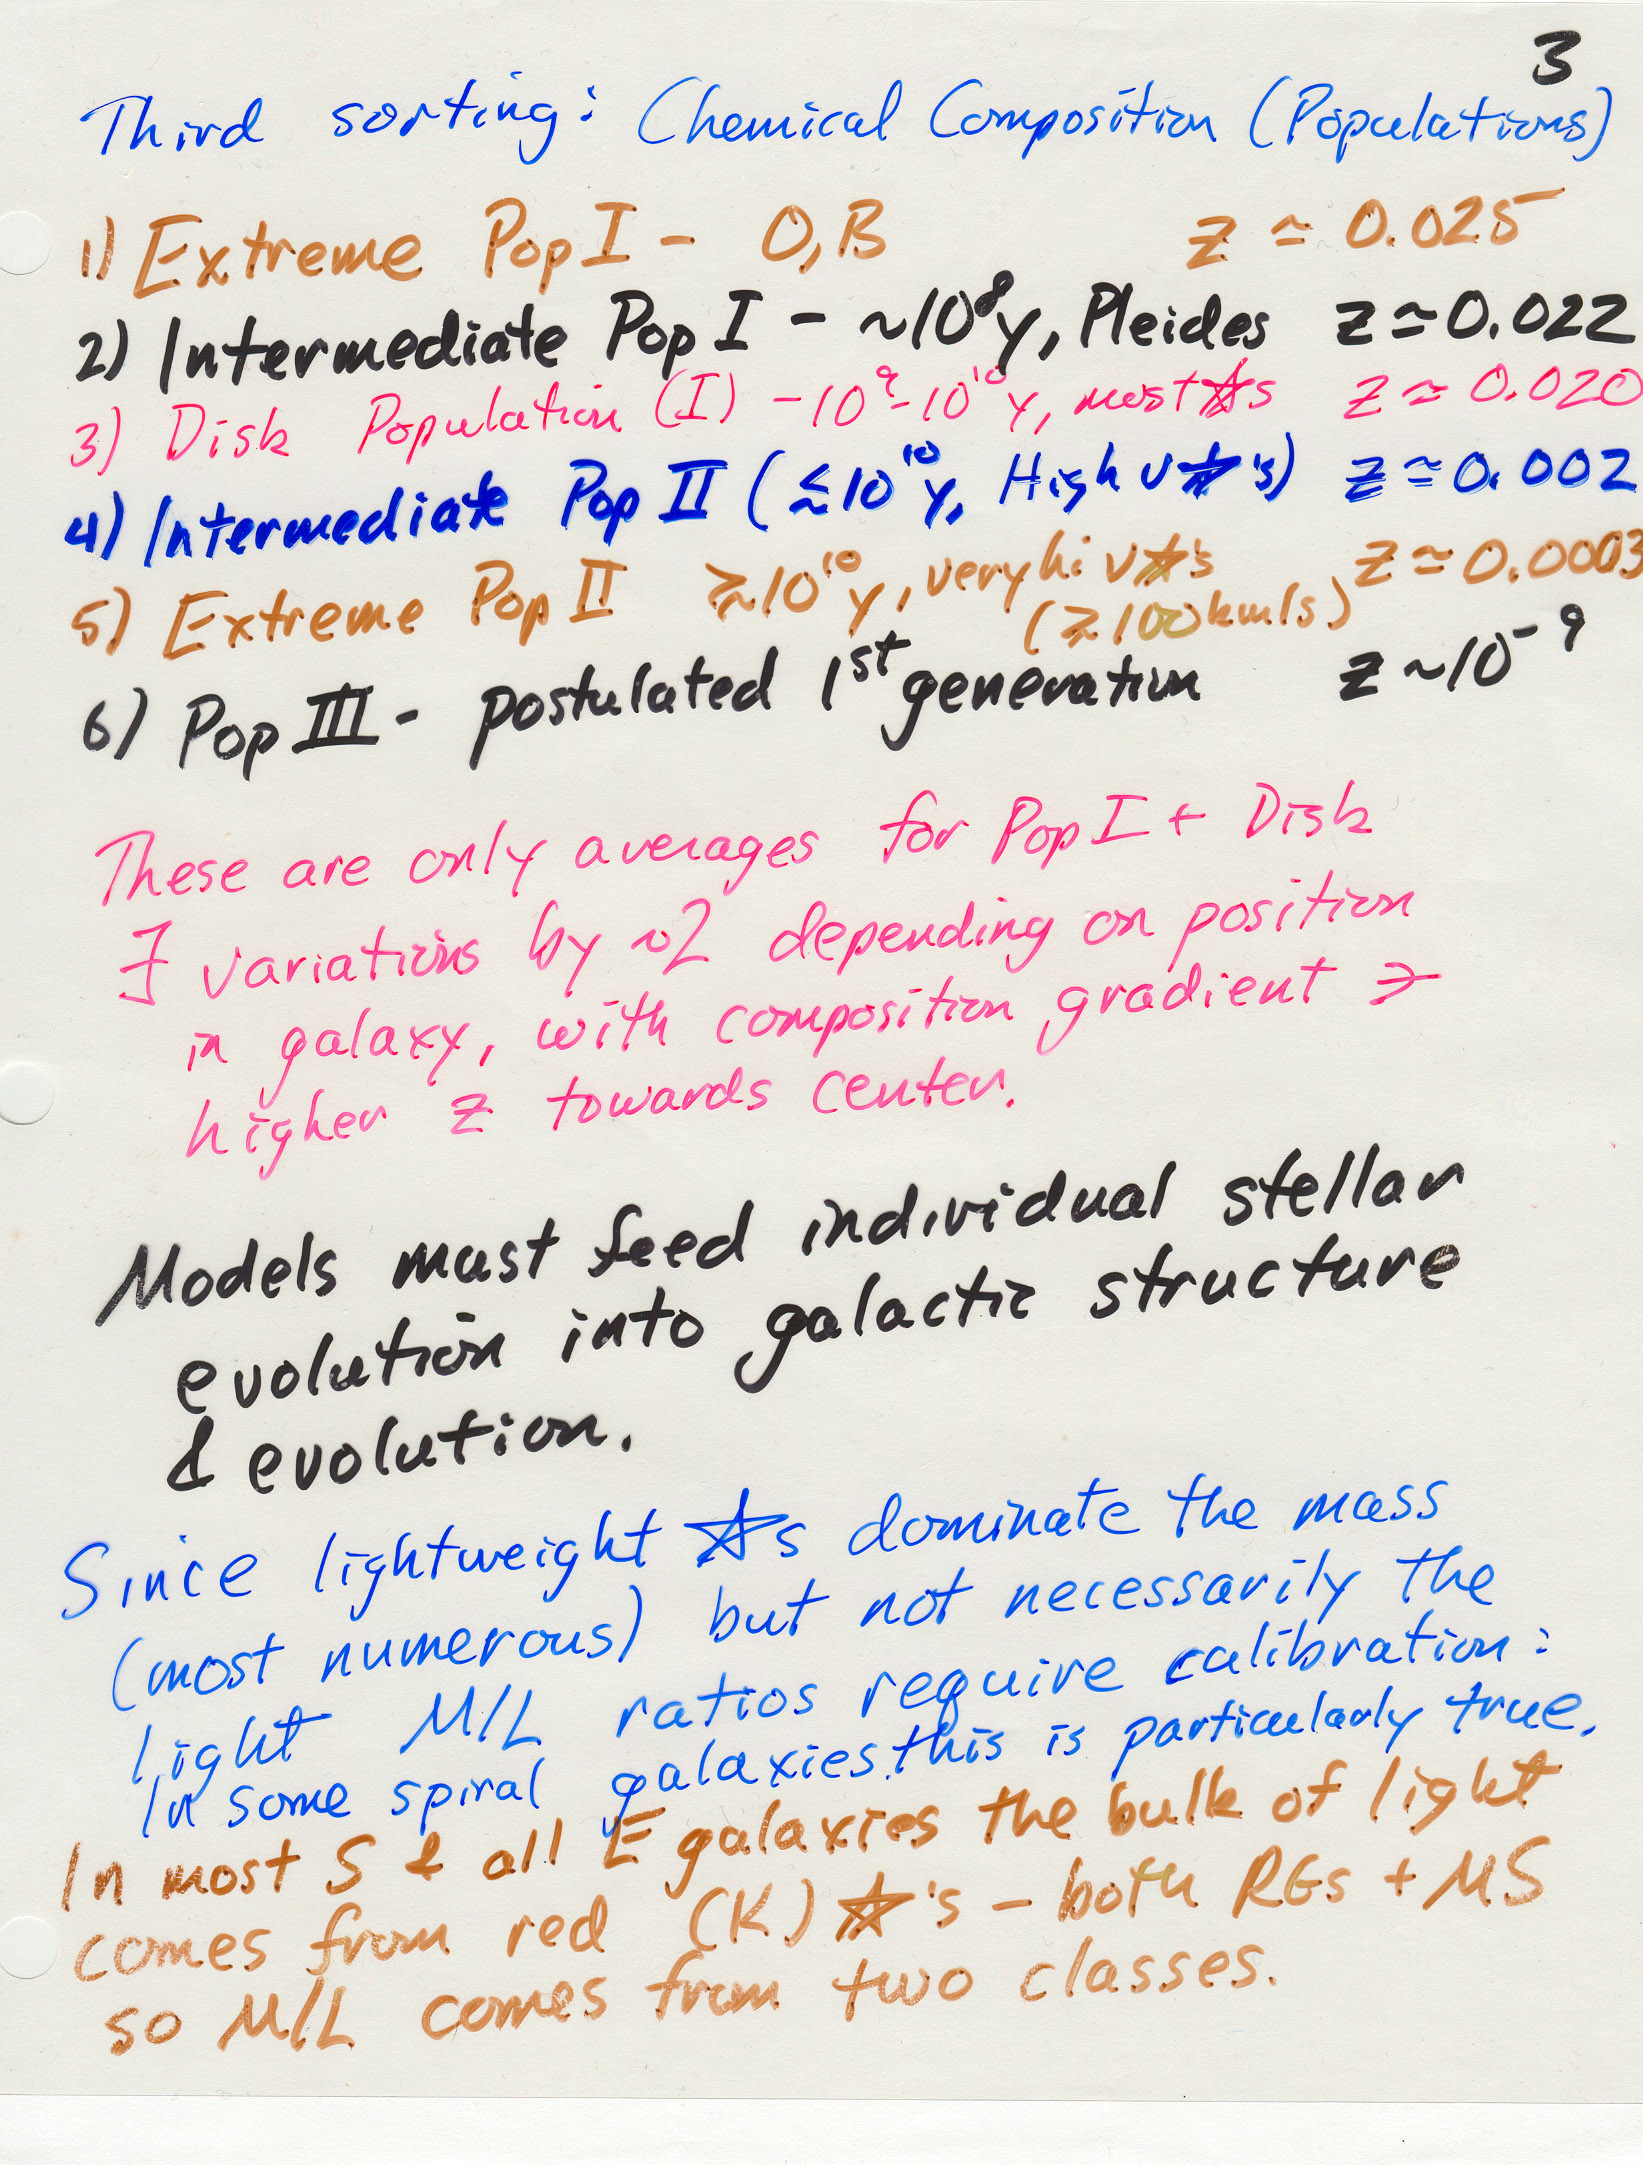 3
Third sorting: Chemical Composition (Populations)
1) Extreme Pop I - O, B z ≃ 0.025
2) Intermediate Pop I - ~10⁸y, Pleides z ≃ 0.022
3) Disk Population (I) - 10⁹-10¹⁰y, most ☆s z ≈ 0.020
4) Intermediate Pop II (≲10¹⁰y, High v ☆'s) z ≃ 0.002
5) Extreme Pop II ≳10¹⁰y, very hi v ☆'s z ≃ 0.0003
(≳100km/s)
6) Pop III - postulated 1st generation z ~10⁻⁹
These are only averages for Pop I + Disk
∃ variations by ~2 depending on position
in galaxy, with composition gradient >
higher z towards center.
Models must feed individual stellar
evolution into galactic structure
& evolution.
Since lightweight ☆s dominate the mass
(most numerous) but not necessarily the
light M/L ratios require calibration:
In some spiral galaxies this is particularly true.
In most S & all E galaxies the bulk of light
comes from red (K) ☆'s - both RGs + MS
so M/L comes from two classes.